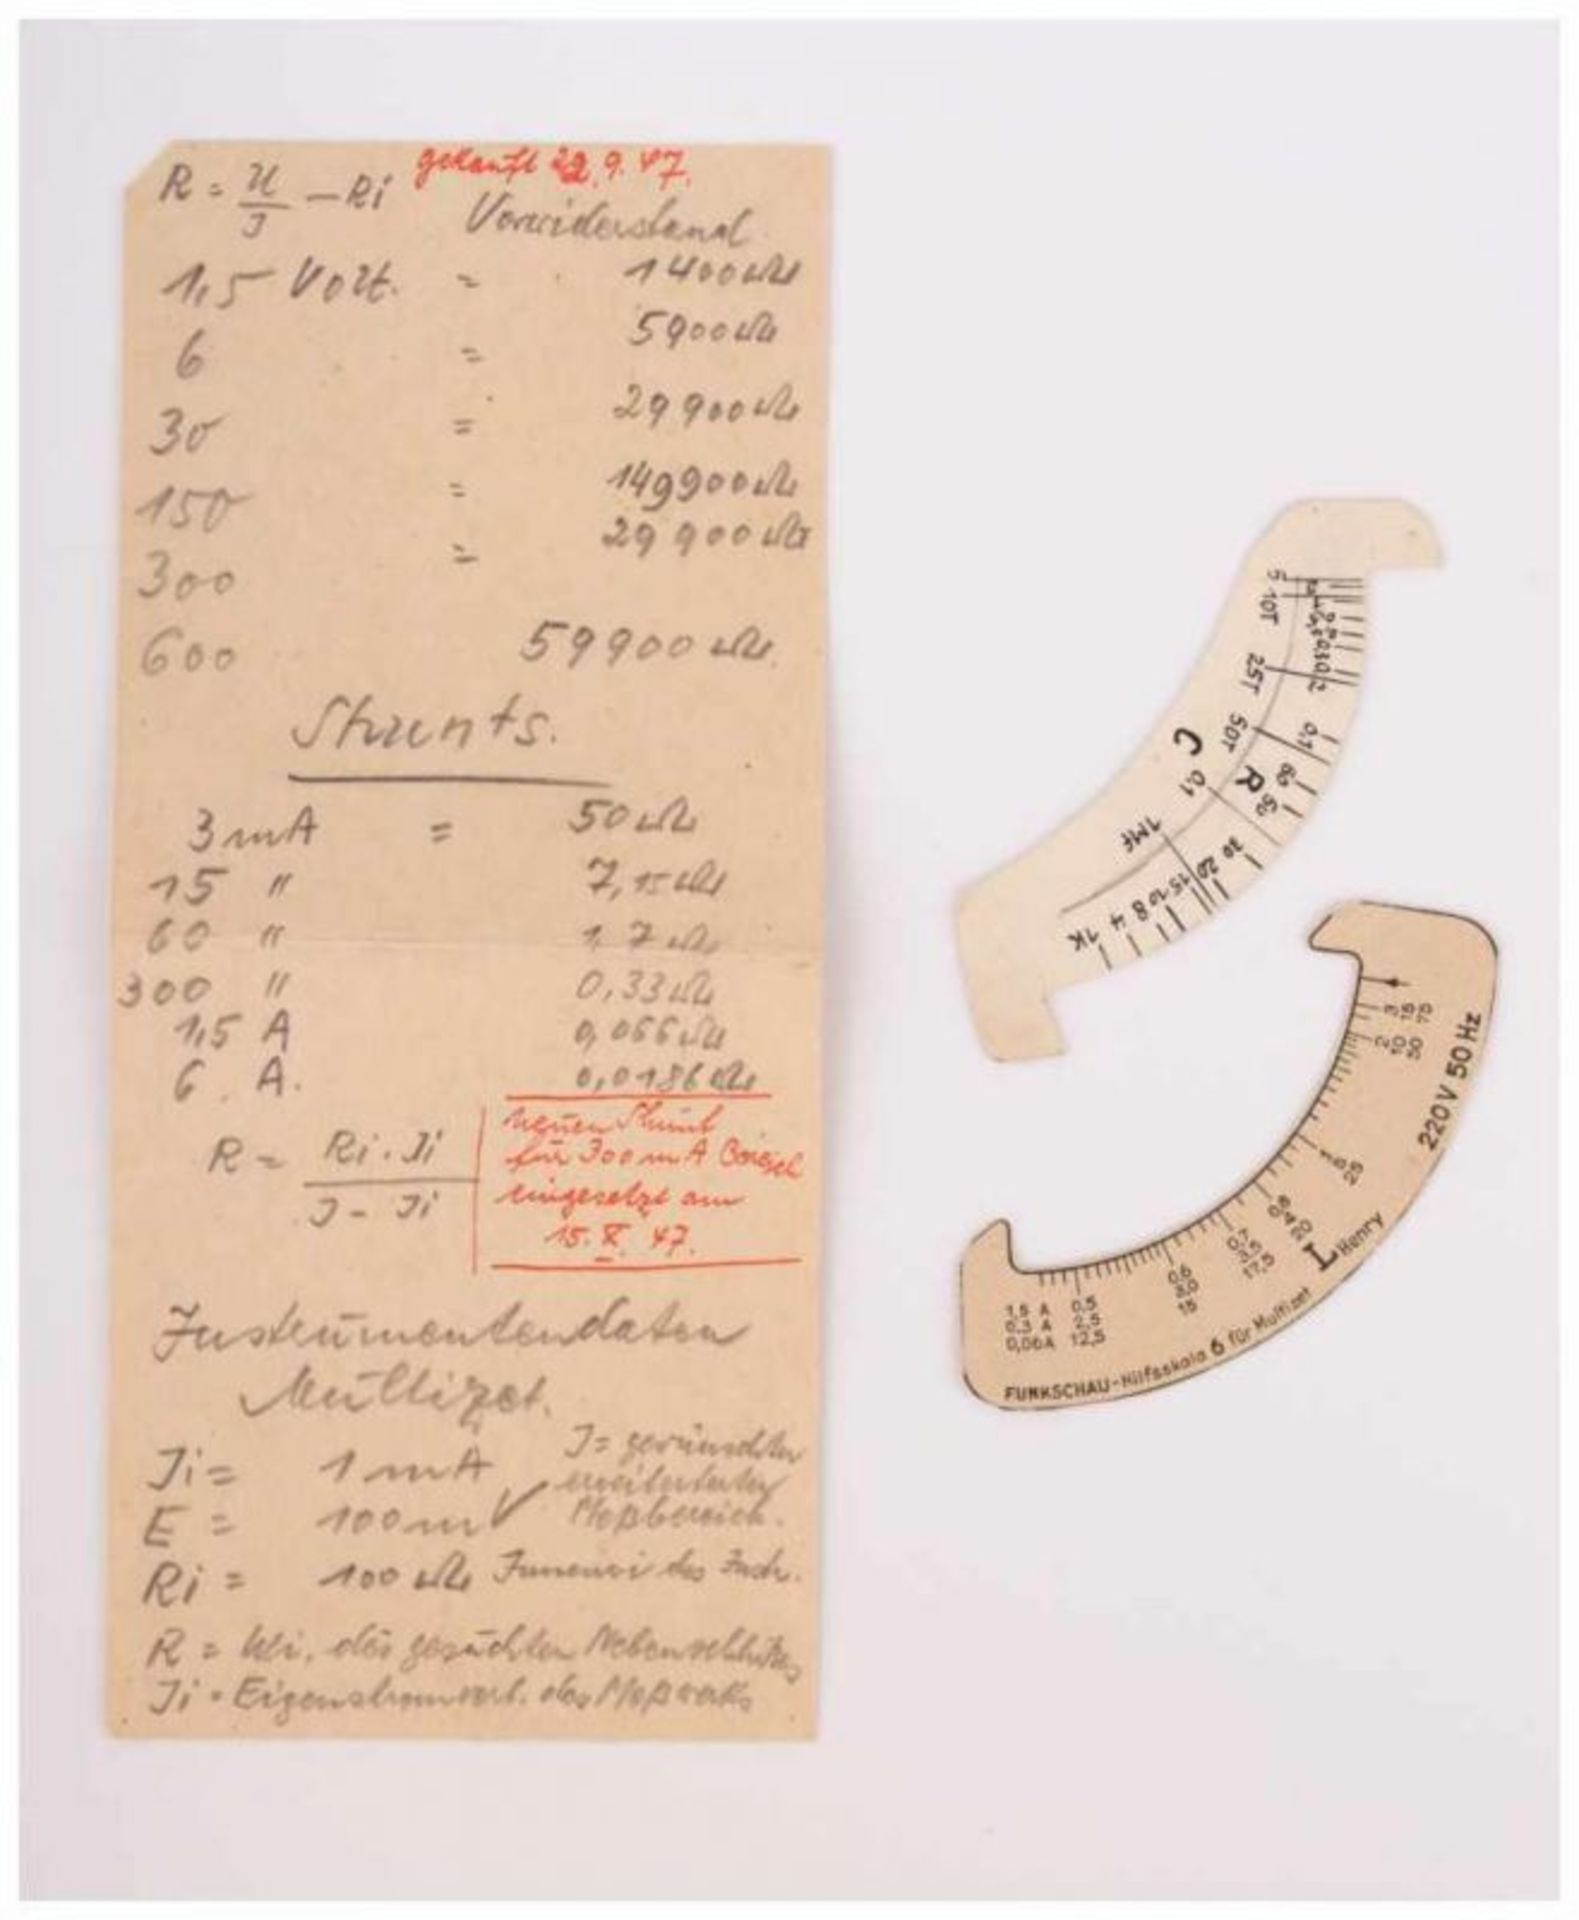 gekauft 22.9.47.
R = U/J - Ri
Vorwiderstand
1,5 Volt. = 1400 Ω
6 = 5900 Ω
30 = 29 900 Ω
150 = 149900 Ω
300 = 29 900 Ω
600 59900 Ω.
Shunts.
3 mA = 50 Ω
15 " 7,15 Ω
60 " 1,7 Ω
300 " 0,33 Ω
1,5 A 0,066 Ω
6 . A. 0,0186 Ω
R = Ri . Ji / J - Ji
neuen Shunt
für 300 mA Bereich
eingesetzt am
15. X. 47.
Instrumentendaten
Multizet.
Ji = 1 mA
E = 100 mV
Ri = 100 Ω Innenwi des Instr.
J = gewünschter
erweiterter
Meßbereich.
R = Wi. des gesuchten Nebenschlußes
Ji = Eigenstromverb. des Meßwerks
5 10T 25T 50T 0,1 1MF
C
R
0,2 0,1 80 50 30 20 15 10 8 4 1K
3 15 75
2 10 50
1 5 25
0,8 4 20
0,7 3,5 17,5
0,6 3,0 15
1,5 A 0,5
0,3 A 2,5
0,06A 12,5
220V 50 Hz
L Henry
FUNKSCHAU-Hilfsskala 6 für Multizet